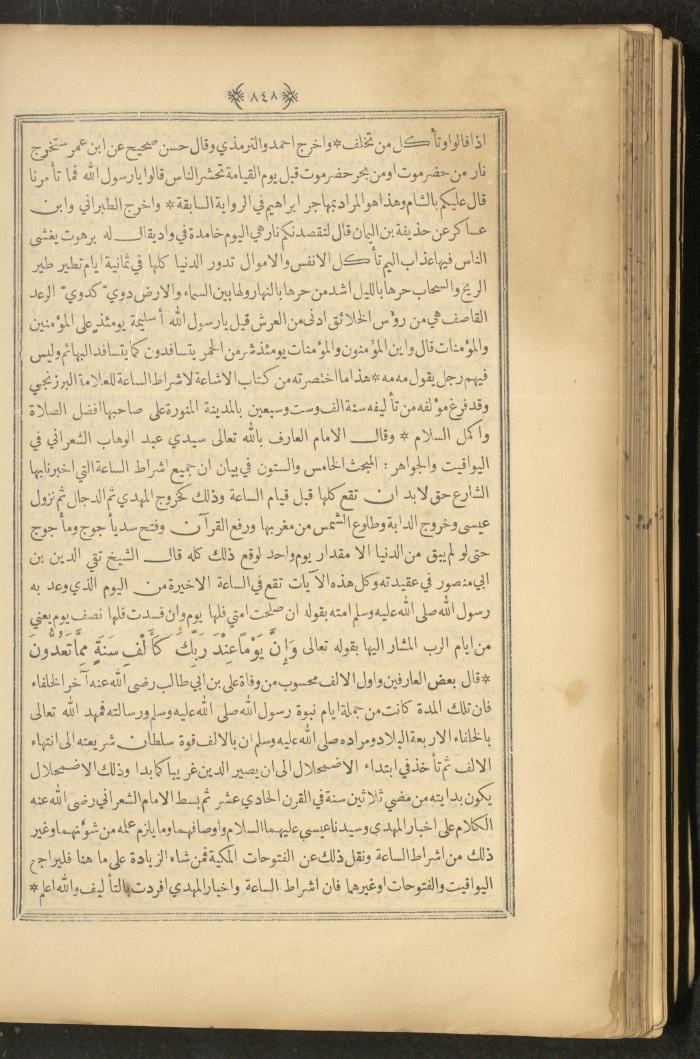 ﴿ ٨٤٨ ﴾
اذا قالوا وتأكل من تخلف * واخرج احمد والترمذي وقال حسن صحيح عن ابن عمر ستخرج
نار من حضرموت او من بحر حضرموت قبل يوم القيامة تحشر الناس قالوا يارسول الله فما تأمرنا
قال عليكم بالشام وهذا هو المراد بمهاجر ابراهيم في الرواية السابقة * واخرج الطبراني وابن
عساكر عن حذيفة بن اليمان قال لتقصدنكم نار هي اليوم خامدة في واد يقال له برهوت يغشى
الناس فيها عذاب اليم تأكل الانفس والاموال تدور الدنيا كلها في ثمانية ايام تطير طير
الريح والسحاب حرها بالليل اشد من حرها بالنهار ولها بين السماء والارض دويّ كدويّ الرعد
القاصف هي من رؤس الخلائق ادنى من العرش قيل يارسول الله أسليمة يومئذ على المؤمنين
والمؤمنات قال واين المؤمنون والمؤمنات يومئذ شر من الحمر يتسافدون كما يتسافد البهائم وليس
فيهم رجل يقول مه مه * هذا ما اختصرته من كتاب الاشاعة لاشراط الساعة للعلامة البرزنجي
وقد فرغ مؤلفه من تأليفه سنة الف وست وسبعين بالمدينة المنورة على صاحبها افضل الصلاة
واكمل السلام * وقال الامام العارف بالله تعالى سيدي عبد الوهاب الشعراني في
اليواقيت والجواهر : المبحث الخامس والستون في بيان ان جميع اشراط الساعة التي اخبرنا بها
الشارع حق لابد ان تقع كلها قبل قيام الساعة وذلك كخروج المهدي ثم الدجال ثم نزول
عيسى وخروج الدابة وطلوع الشمس من مغربها ورفع القرآن وفتح سد يأجوج ومأجوج
حتى لو لم يبق من الدنيا الا مقدار يوم واحد لوقع ذلك كله قال الشيخ تقي الدين بن
ابي منصور في عقيدته وكل هذه الآيات تقع في الساعة الاخيرة من اليوم الذي وعد به
رسول الله صلى الله عليه وسلم امته بقوله ان صلحت امتي فلها يوم وان فسدت فلها نصف يوم يعني
من ايام الرب المشار اليها بقوله تعالى وَإِنَّ يَوْمًا عِنْدَ رَبِّكَ كَأَلْفِ سَنَةٍ مِمَّا تَعُدُّونَ
* قال بعض العارفين واول الالف محسوب من وفاة علي بن ابي طالب رضى الله عنه آخر الخلفاء
فان تلك المدة كانت من جملة ايام نبوة رسول الله صلى الله عليه وسلم ورسالته فمهد الله تعالى
بالخلفاء الاربعة البلاد ومراده صلى الله عليه وسلم ان بالالف قوة سلطان شريعته الى انتهاء
الالف ثم تأخذ في ابتداء الاضمحلال الى ان يصير الدين غريبا كما بدا وذلك الاضمحلال
يكون بدايته من مضي ثلاثين سنة في القرن الحادي عشر ثم بسط الامام الشعراني رضى الله عنه
الكلام على اخبار المهدي وسيدنا عيسى عليهما السلام واوصافهما وما يلزم علمه من شؤنهما وغير
ذلك من اشراط الساعة ونقل ذلك عن الفتوحات المكية فمن شاء الزيادة على ما هنا فليراجع
اليواقيت والفتوحات اوغيرهما فان اشراط الساعة واخبار المهدي افردت بالتأليف والله اعلم *